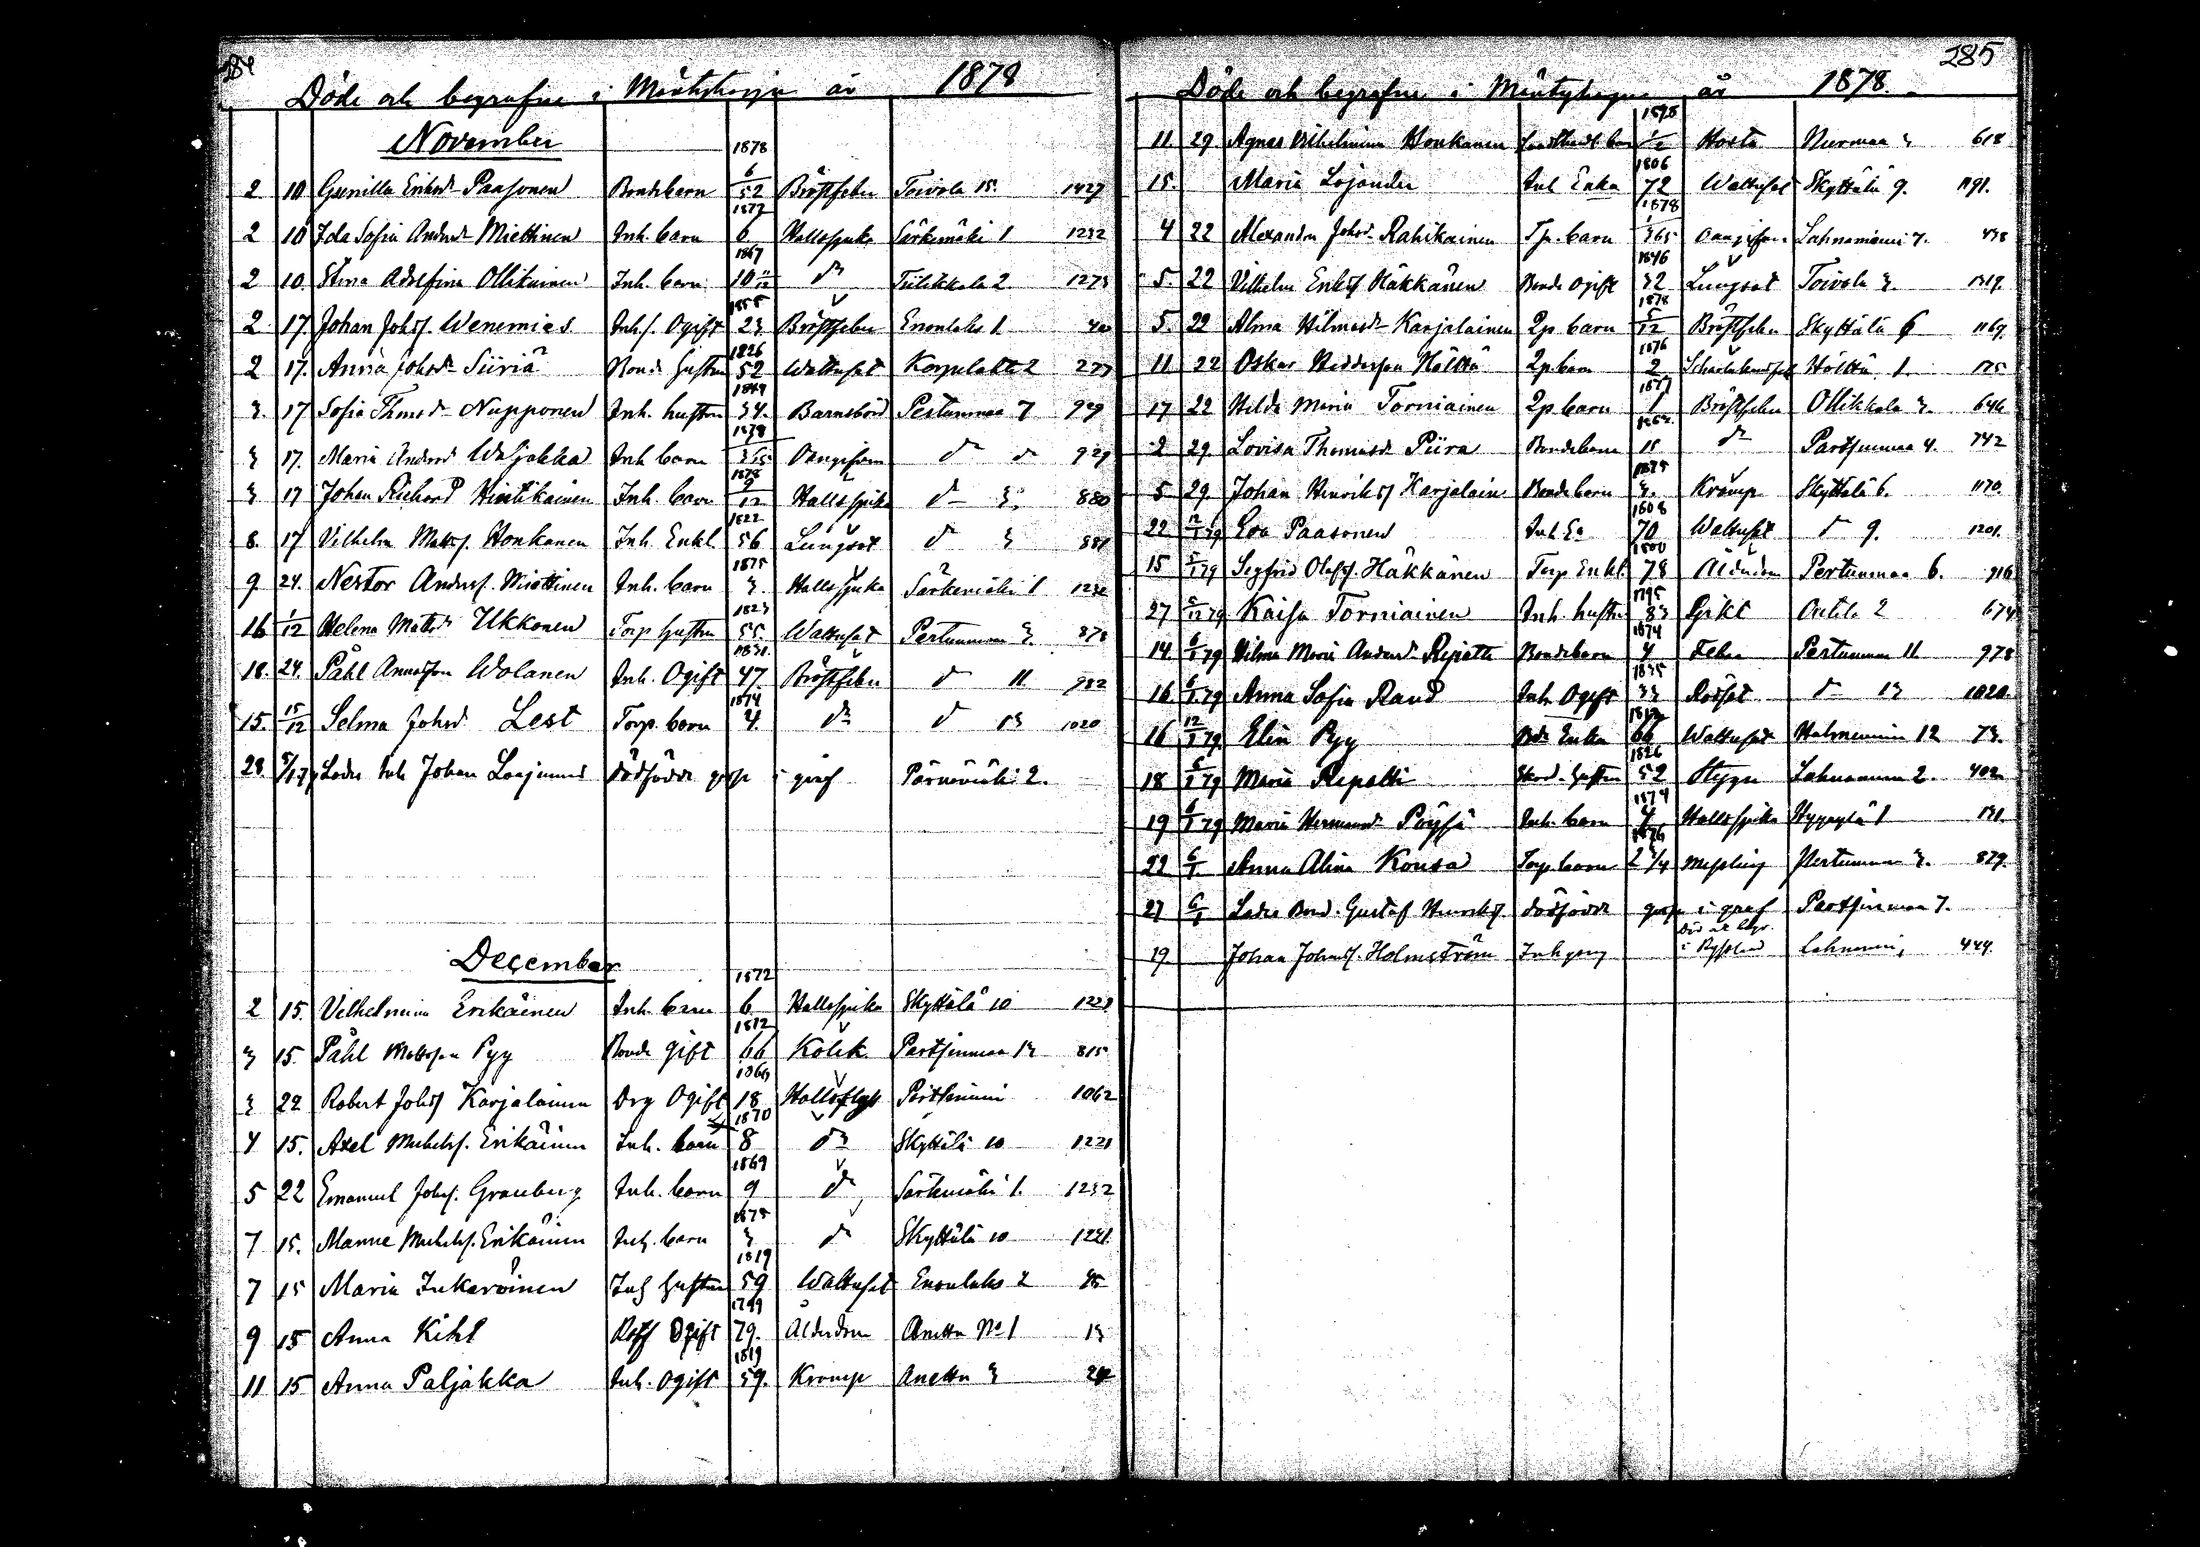 284
Döde och begrafne i Mäntyharju år 1878
November
1878
2 10 Gunilla Eriksd. Paasonen Bondebarn 6/52 Bröstfeber Toivola 15. 1427
1872
2 10 Ida Sofia Andersd. Miettinen Inh. barn 6 Halssjuka Särkemäki 1 1232
1867
2 10. Stina Adolfina Ollikainen Inh. barn 10 11/12 do 2. 1273
1855
2 17. Johan Johss. Wenemies Inhs. Ogift 23 Bröstfeber Enonlaks 1
1826
2 17. Anna Johsd. Siiriä Bond. hustru 52 Wattusot Korpelaks 2
1844
3. 17 Sofia Thmsd. Nupponen Inh. hustru 34. Barnsbörd Pertunmaa 7 929
1878
3 17. Maria Andersd. Waljakka Inh barn Ond do do 929
1878
3 17 Johan Richard Hintikainen Inh. barn 9/12 Halssjuka do 3. 880
1822
8. 17 Vilhelm Matss. Honkanen Inh. Enkl. 56 Lungsot do 3 881
1875
9 24. Nestor Anderss. Miettinen Inh. barn 3. Halssjuka Särkemäki 1 1232
1823
16 1/12 Helena Mattsd. Ukkonen Torp hustru 55. Wattusot Pertunmaa 3. 878
1831.
18. 24. Påhl Andersson Wolanen Inh. Ogift 47 Bröstfeber do 11. 982
1874
15. 15/12 Selma Johsd. Lest Torp. barn 4. do do 13 1020
28 Loders Inh Johan dödfödde i graf Pärnämäki 2.
December
1872
2 15. Vilhelmina Erikäinen Inh. barn 6 Halssjuka Skyttälä 10 1221
1812
3 15. Påhl Mattsson Pyy Bonde gift 66 Kolik Partsinmaa 13 815
1860
3 22 Robert Johss Karjalainen Drg Ogift 18 Halsflyt 1062
1870
4 15. Axel Michelss. Erikäinen Inh. barn 8 do Skyttälä 10 1221
1869
5 22 Emanuel Johss. Granberg Inh. barn 9 do Särkemäki 1. 1232
1875
7 15. Manne Michelss. Erikäinen Inh. barn 3 do Skyttälä 10 1221.
1819
7 15 Maria Inkeroinen Inh hustru 59 Wattusot Enonlaks 2
1799
9 15 Anna Kihl Ogift 79. Ålderdom Anettu No 1 13
1819
11 15 Anna Paljakka Inh. Ogift 59. Kramp Anettu 3
285
Döde och begrafne i Mäntyharju år 1878.
1878
11. 29 Agnes Vilhelmina Honkanen Hosta Nurmaa 3 618
1806
15. Maria Lojander Inh Enka 72 Wattusot Skyttälä 9. 1191.
1878
4 22 Alexandra Johsd. Rahikainen Tp. barn Lahnaniemi 7.
1846
5. 22 Vilhelm Erikss Häkkänen Bonde Ogift 32 Lungsot Toivola 3. 1319.
1878
5. 22 Alma Hilmasd. Karjalainen Tp barn 5/12 Bröstfeber Skyttälä 6 1169.
1876
11 22 Oskar Höltta Tp barn 2 Höltta 1. 175
1877
17 22 Hilda Maria Torniainen Tp barn 1 Bröstfeber Ollikkala 3. 646
2 29 Lovisa Thomasd. Piira Bondebarn 11 do Partsinmaa 4. 742
1875
5. 29. Johan Henrikss Karjalain Bondebarn 3. Kramp Skyttälä 6. 1170.
1808
22 12/1 79 Eva Paasonen Inh. Ea 70 Wattusot do 9. 1201.
1800
15 79 Sigfrid Olofss. Häkkänen Torp Enkl. 78 Ålderdom Pertunmaa 6. 916
1795
27 Kaisa Torniainen Inh. hustru 83 2 674
1874
14 6/1 79 Hilma Maria Andersd. Repatti Bondebarn 4 Feber Pertunmaa 11 978
1845
16 6/1 79 Anna Sofia Rand Inh Ogift 33 do 13 1020.
1812
16 12/1 79 Elin Pyy Enka 66 Wattusot 12 73.
1826
18 6/1 79 Maria Repatti hustru 52 Lahnaniemi 2. 402
1874
19 6/1 79 Maria Hermansd. Pöyhiä Inh. barn 4 Halssjuka 1 131.
1876
22 6/1 Anna Alina Konsa Torp. barn 2 1/4 Messling Pertunmaa 3. 879.
27 6/1 Lades Bond. Gustaf Henrikss. dödfödde i graf Partsinmaa 7.
19 Johan Johanss. Holmström Inh Död och begr. i Ryssland Lahnaniemi 444.